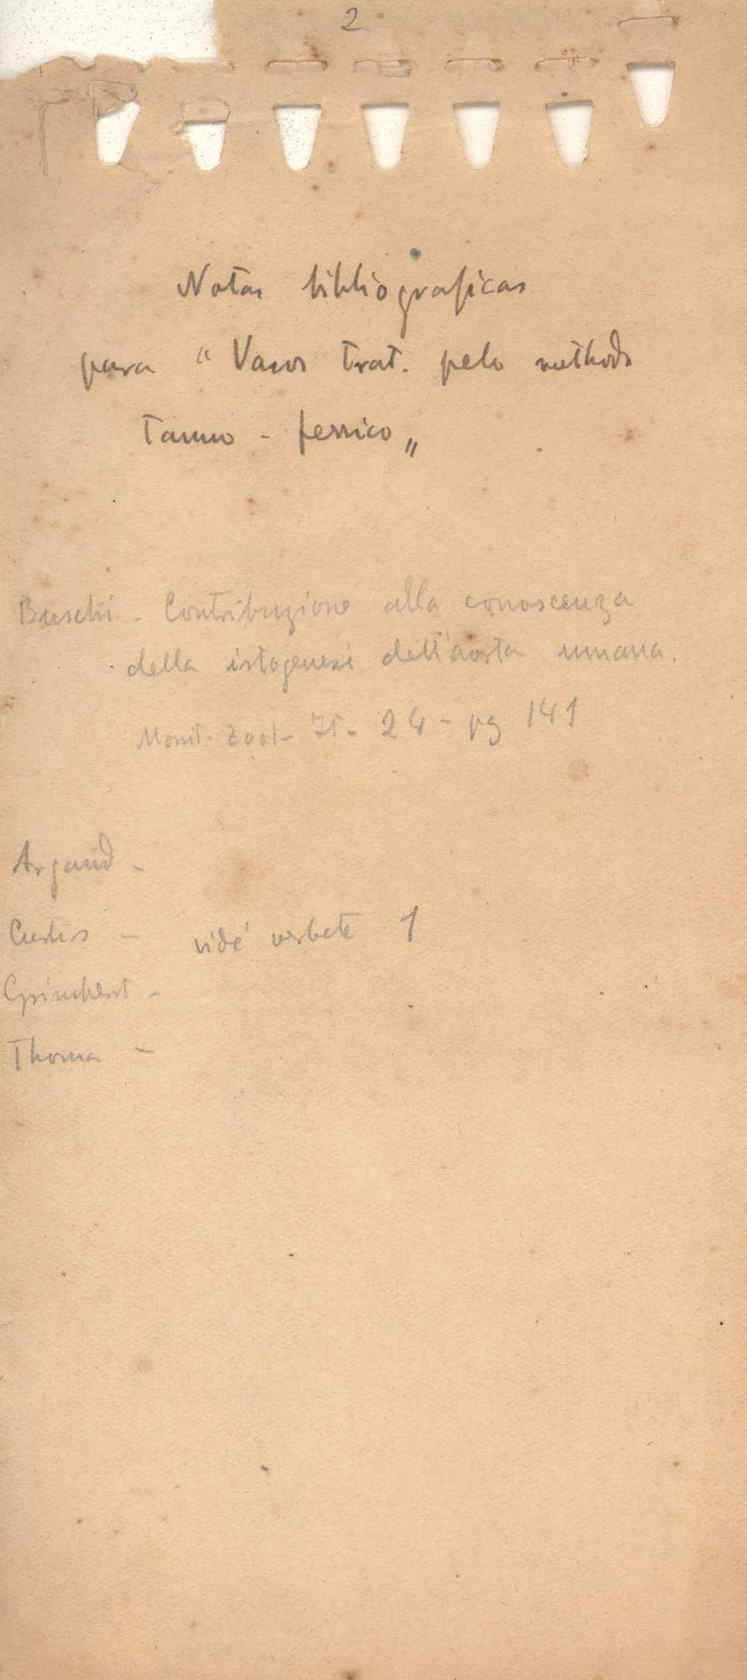 2
Notas bibliograficas
para " Vasos trat. pelo methodo
tanno - ferrico "
Buschi - Contribuzione alla conoscenza
della istogenesi dell'aorta umana.
Monit. Zool. It. 24 - pg 141
Argand -
Curtis - vide verbete 1
Grimbert -
Thoma -